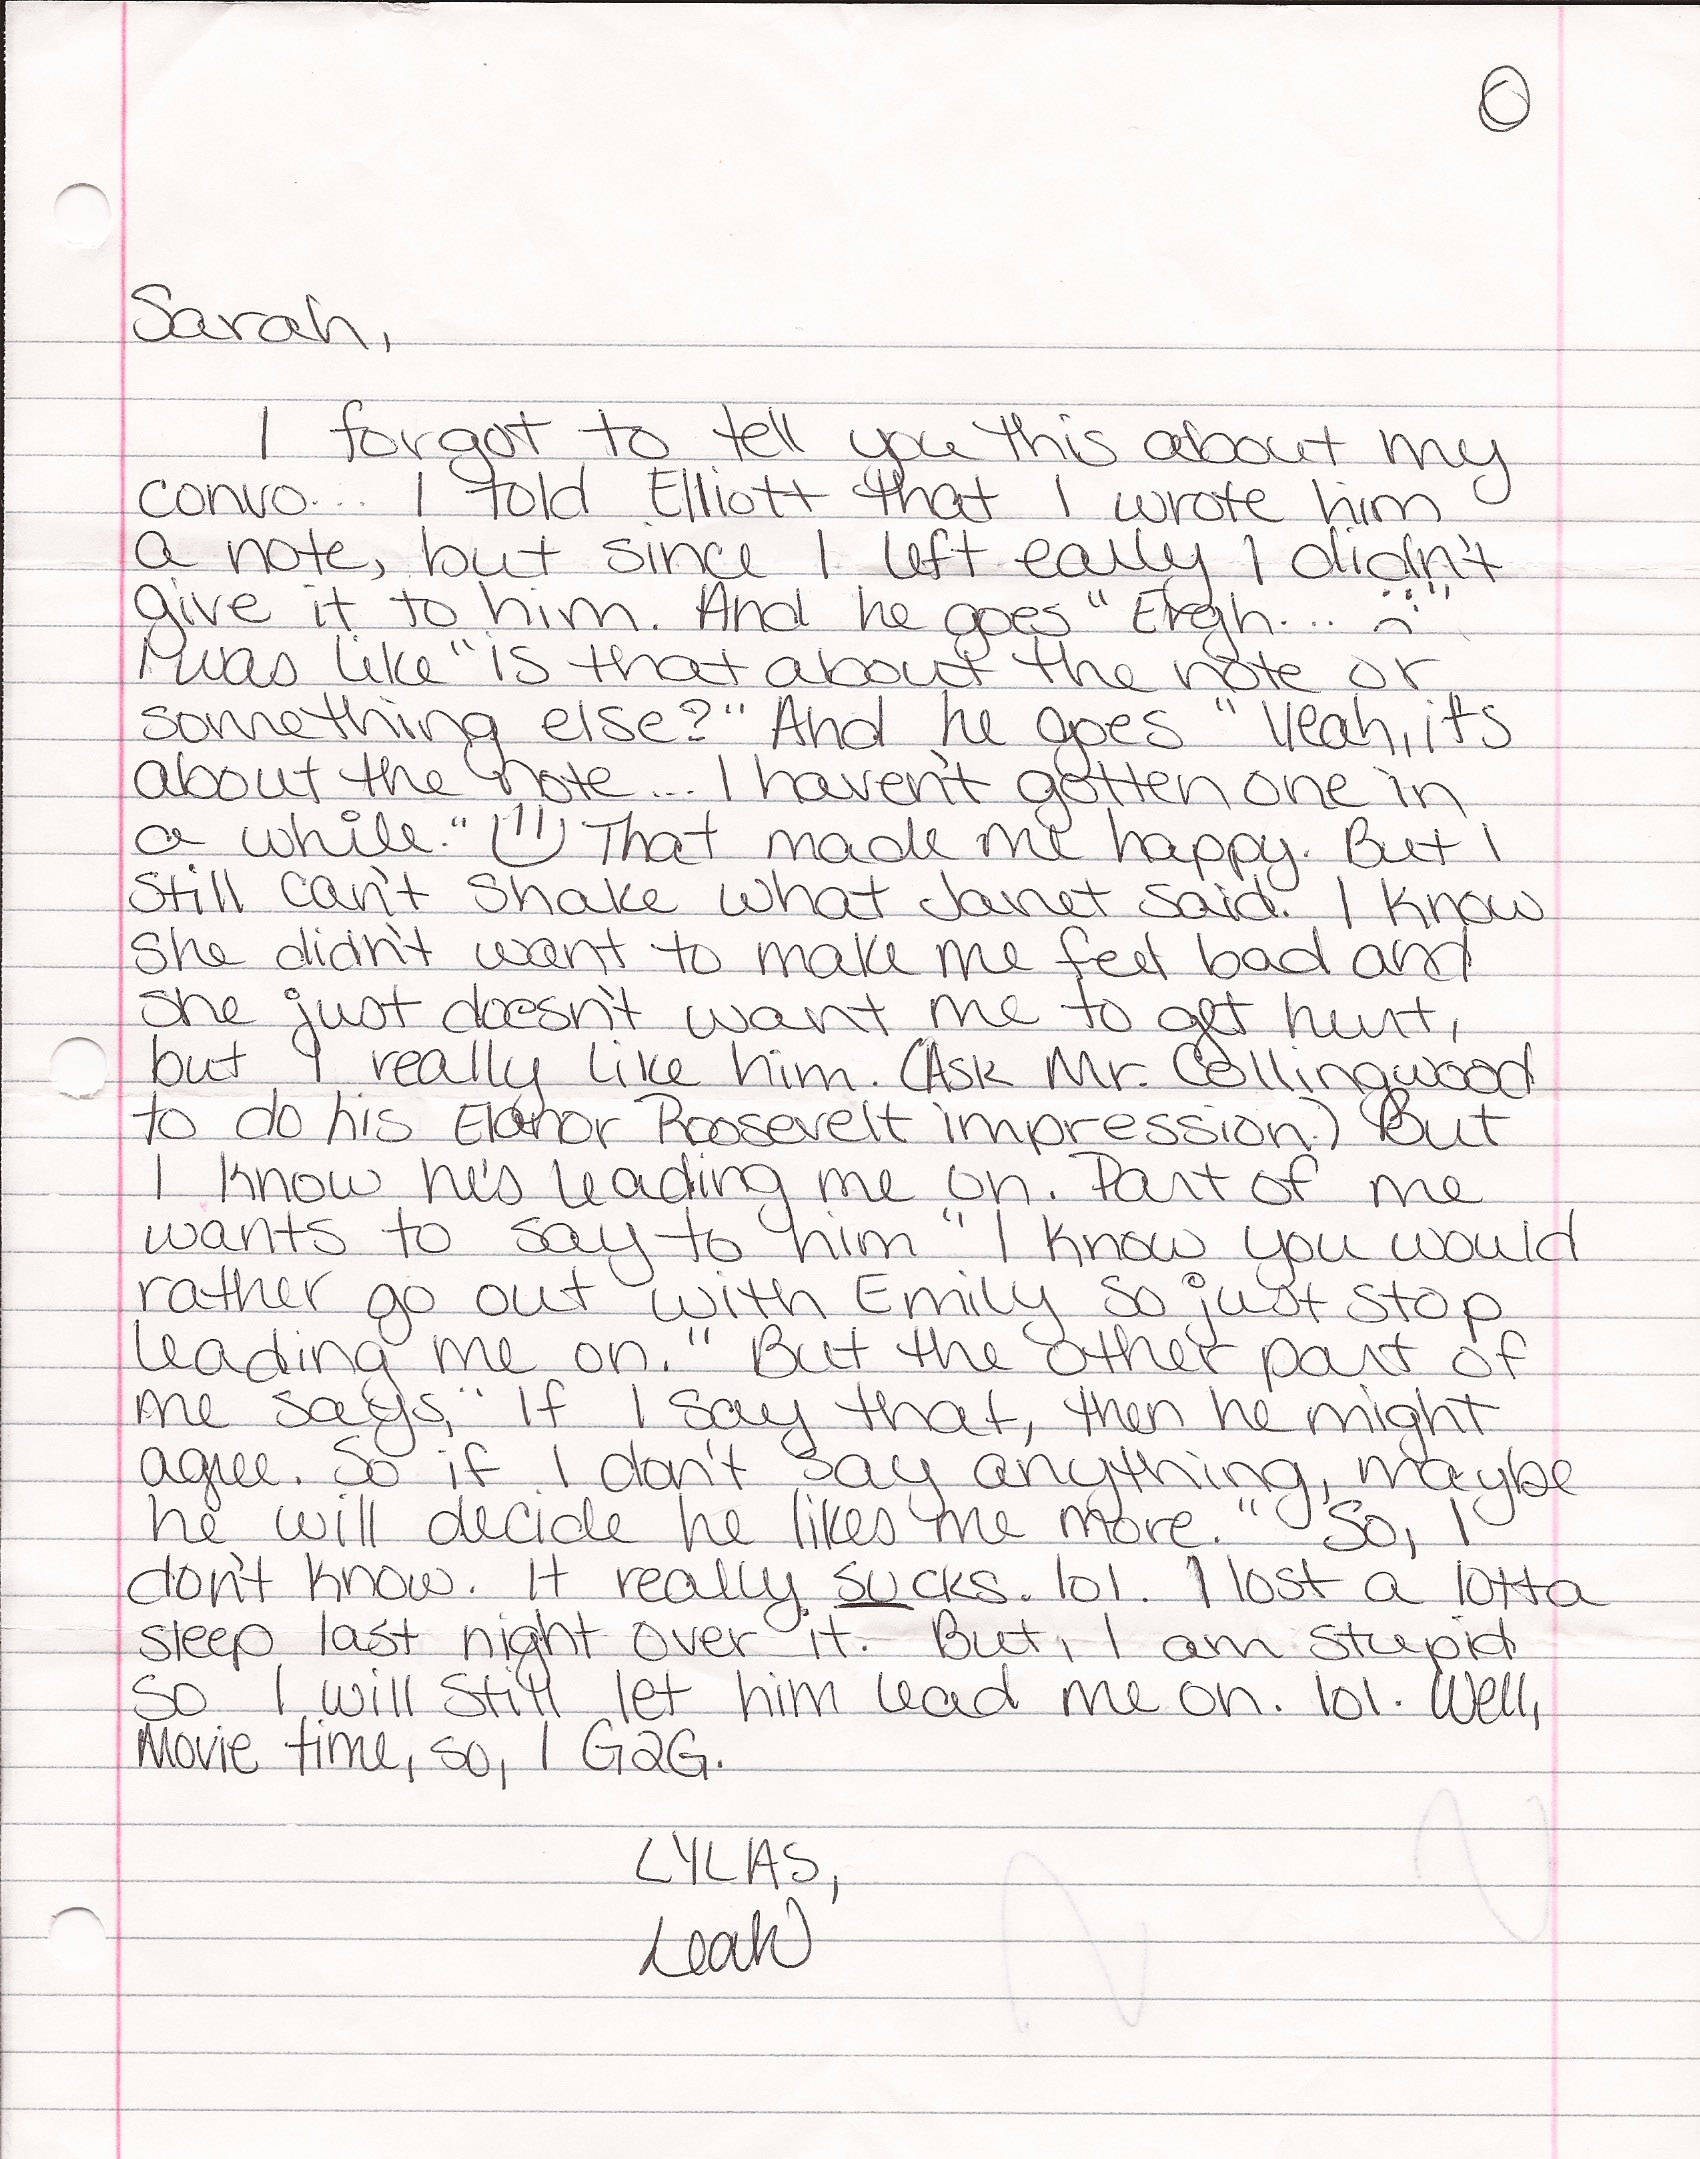 Sarah,
I forgot to tell you this about my
convo... I told Elliott that I wrote him
a note, but since I left early I didn't
give it to him. And he goes "Ergh... :("
I was like "is that about the note or
something else?" And he goes "Yeah, it's
about the note... I haven't gotten one in
a while." :) That made me happy. But I
still can't shake what Janet said. I know
she didn't want to make me feel bad and
she just doesn't want me to get hurt,
but I really like him. (Ask Mr. Collingwood
to do his Elanor Roosevelt impression.) But
I know he's leading me on. Part of me
wants to say to him "I know you would
rather go out with Emily so just stop
leading me on." But the other part of
me says, "If I say that, then he might
agree. So if I don't say anything, maybe
he will decide he likes me more." So, I
don't know. It really sucks. lol. I lost a lotta
sleep last night over it. But, I am stupid
so I will still let him lead me on. lol. Well,
Movie time, so, I G2G.
LYLAS,
Leah